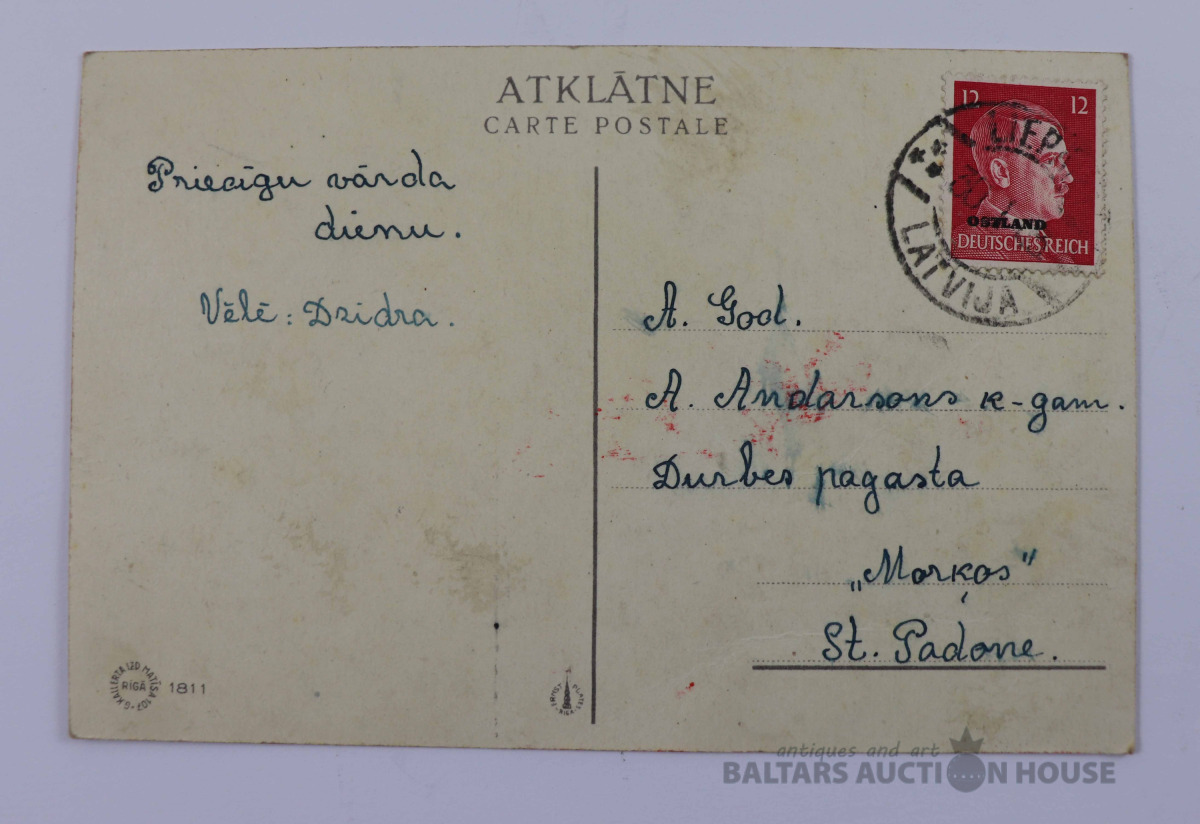 ATKLĀTNE
CARTE POSTALE
12 12
OSTLAND
DEUTSCHES REICH
LATVIJA
Priecīgu vārda
dienu.
Vēlē: Dzidra.
A. God.
A. Andarsons k-gam.
Durbes pagasta
„Morķos"
St. Padone.
G. KAILERTA IZD. MATĪSA 107
RĪGĀ
1811
antiques and art
BALTARS AUCTION HOUSE